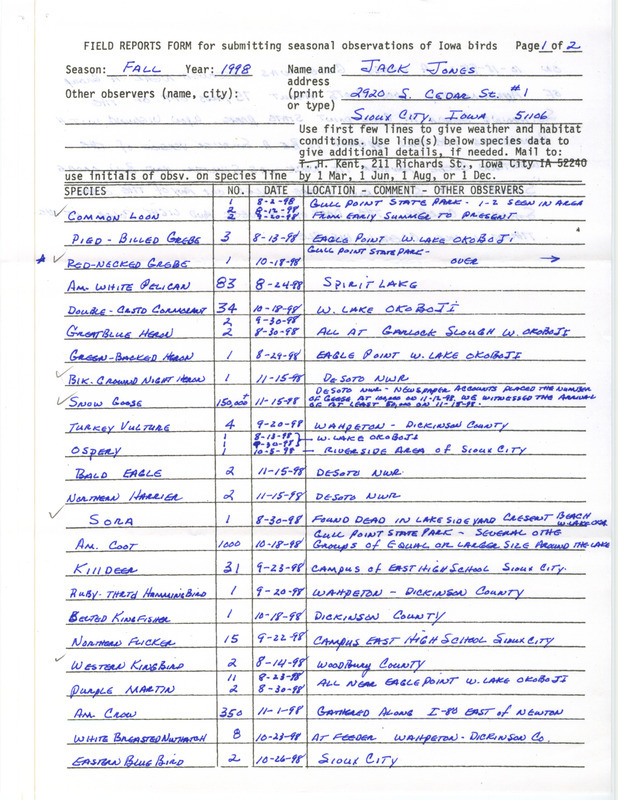 FIELD REPORTS FORM for submitting seasonal observations of Iowa birds Page 1 of 2
Season: FALL Year: 1998 Name and JACK JONES
address
Other observers (name, city): (print 2920 S. CEDAR ST. #1
or type)
SIOUX CITY, IOWA 51106
Use first few lines to give weather and habitat
conditions. Use line(s) below species data to
give additional details, if needed. Mail to:
T. H. Kent, 211 Richards St., Iowa City IA 52240
use initials of obsv. on species line by 1 Mar, 1 Jun, 1 Aug, or 1 Dec.
SPECIES NO. DATE LOCATION - COMMENT - OTHER OBSERVERS
1 8-2-98 GULL POINT STATE PARK - 1-2 SEEN IN AREA
2 8-12-98
✓ COMMON LOON 2 9-20-98 FROM EARLY SUMMER TO PRESENT
PIED-BILLED GREBE 3 8-13-98 EAGLE POINT W. LAKE OKOBOJI
GULL POINT STATE PARK-
★ ✓ RED-NECKED GREBE 1 10-18-98 OVER →
AM. WHITE PELICAN 83 8-24-98 SPIRIT LAKE
DOUBLE-CRSTD CORMORANT 34 10-18-98 W. LAKE OKOBOJI
2 9-30-98
GREAT BLUE HERON 2 8-30-98 ALL AT GARLOCK SLOUGH W. OKOBOJI
GREEN-BACKED HERON 1 8-29-98 EAGLE POINT W. LAKE OKOBOJI
✓ BLK. CROWND NIGHT HERON 1 11-15-98 DESOTO NWR
DESOTO NWR - NEWSPAPER ACCOUNTS PLACED THE NUMBER
✓ SNOW GOOSE 150,000± 11-15-98 OF GEESE AT ON 11-12-98. WE WITNESSED THE ARRIVAL
OF AT LEAST ON 11-15-98.
TURKEY VULTURE 4 9-20-98 WAHPETON - DICKINSON COUNTY
1 8-13-98 W. LAKE OKOBOJI
1 9-30-98
OSPERY 1 10-5-98 RIVERSIDE AREA OF SIOUX CITY
BALD EAGLE 2 11-15-98 DESOTO NWR
NORTHERN HARRIER 2 11-15-98 DESOTO NWR
✓ SORA 1 8-30-98 FOUND DEAD IN LAKE SIDE YARD CRESENT BEACH
W. LAKE OKO
GULL POINT STATE PARK - SEVERAL OTHE
AM. COOT 1000 10-18-98 GROUPS OF EQUAL OR LARGER SIZE AROUND THE LAKE
KILLDEER 31 9-23-98 CAMPUS OF EAST HIGH SCHOOL SIOUX CITY.
RUBY-THRTD HUMMINGBIRD 1 9-20-98 WAHPETON - DICKINSON COUNTY
BELTED KINGFISHER 1 10-18-98 DICKINSON COUNTY
NORTHERN FLICKER 15 9-22-98 CAMPUS EAST HIGH SCHOOL SIOUX CITY
✓ WESTERN KINGBIRD 2 8-14-98 WOODBURY COUNTY
11 8-23-98 ALL NEAR EAGLE POINT W. LAKE OKOBOJI
PURPLE MARTIN 2 8-30-98
AM. CROW 350 11-1-98 GATHERED ALONG I-80 EAST OF NEWTON
WHITE BREASTED NUTHATCH 8 10-23-98 AT FEEDER WAHPETON - DICKINSON CO.
EASTERN BLUE BIRD 2 10-26-98 SIOUX CITY